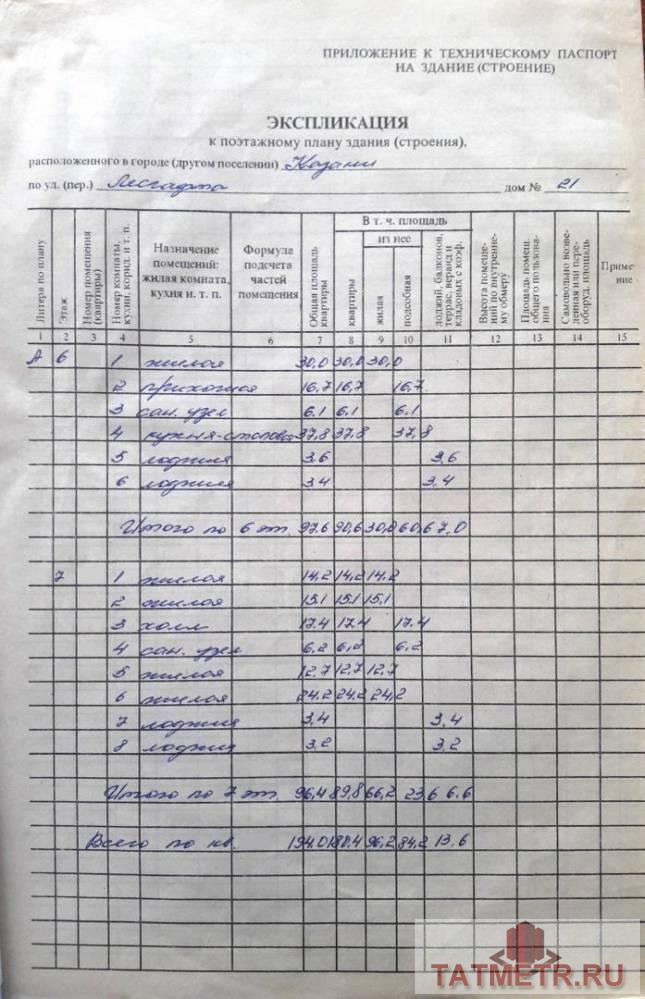 ПРИЛОЖЕНИЕ К ТЕХНИЧЕСКОМУ ПАСПОРТ
НА ЗДАНИЕ (СТРОЕНИЕ)
ЭКСПЛИКАЦИЯ
к поэтажному плану здания (строения),
расположенного в городе (другом поселении) Казани
по ул. (пер.) Лесгафта дом № 21
Литера по плану
Этаж
Номер помещения (квартиры)
Номер комнаты, кухни, корид. и т. п.
Назначение помещений: жилая комната, кухня и т. п.
Формула подсчета частей помещения
Общая площадь квартиры
В т. ч. площадь
квартиры
из нее
жилая
подсобная
лоджий, балконов, террас, веранд и кладовых с коэф.
Высота помеще-ний по внутренне-му обмеру
Площадь помещ. общего пользова-ния
Самовольно возве-денная или пере-оборуд. площадь
Приме ние
1 2 3 4 5 6 7 8 9 10 11 12 13 14 15
А 6 1 жилая 30,0 30,0 30,0
2 прихожая 16,7 16,7 16,7
3 сан. узел 6,1 6,1 6,1
4 кухня-столовая 37,8 37,8 37,8
5 лоджия 3,6 3,6
6 лоджия 3,4 3,4
Итого по 6 эт. 97,6 90,6 30,0 60,6 7,0
7 1 жилая 14,2 14,2 14,2
2 жилая 15,1 15,1 15,1
3 холл 17,4 17,4 17,4
4 сан. узел 6,2 6,2 6,2
5 жилая 12,7 12,7 12,7
6 жилая 24,2 24,2 24,2
7 лоджия 3,4 3,4
8 лоджия 3,2 3,2
Итого по 7 эт. 96,4 89,8 66,2 23,6 6,6
Всего по кв. 194,0 180,4 96,2 84,2 13,6
TATMETR.RU